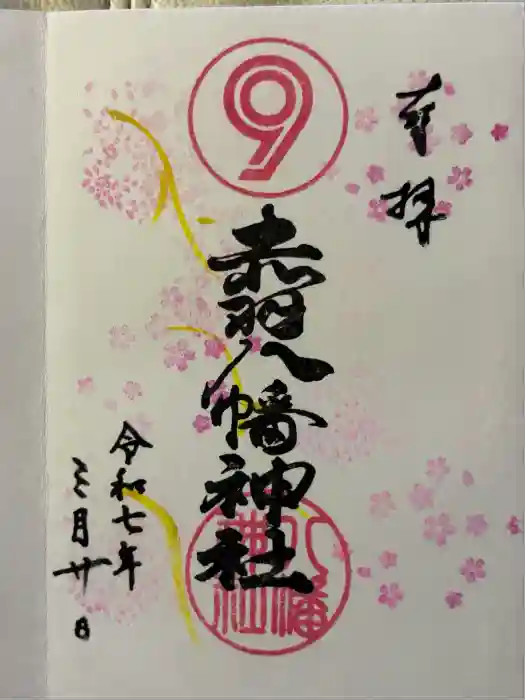 奉拝
9
赤羽八幡神社
令和七年
三月廿日